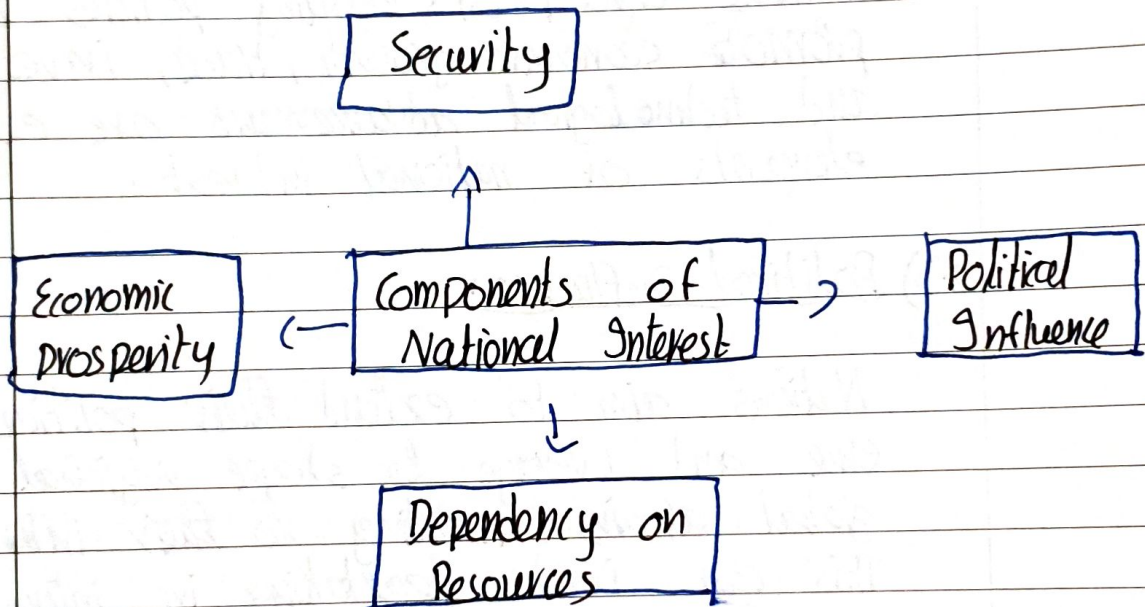 Security
Economic
Prosperity
Components of
National Interest
Political
Influence
Dependency on
Resources